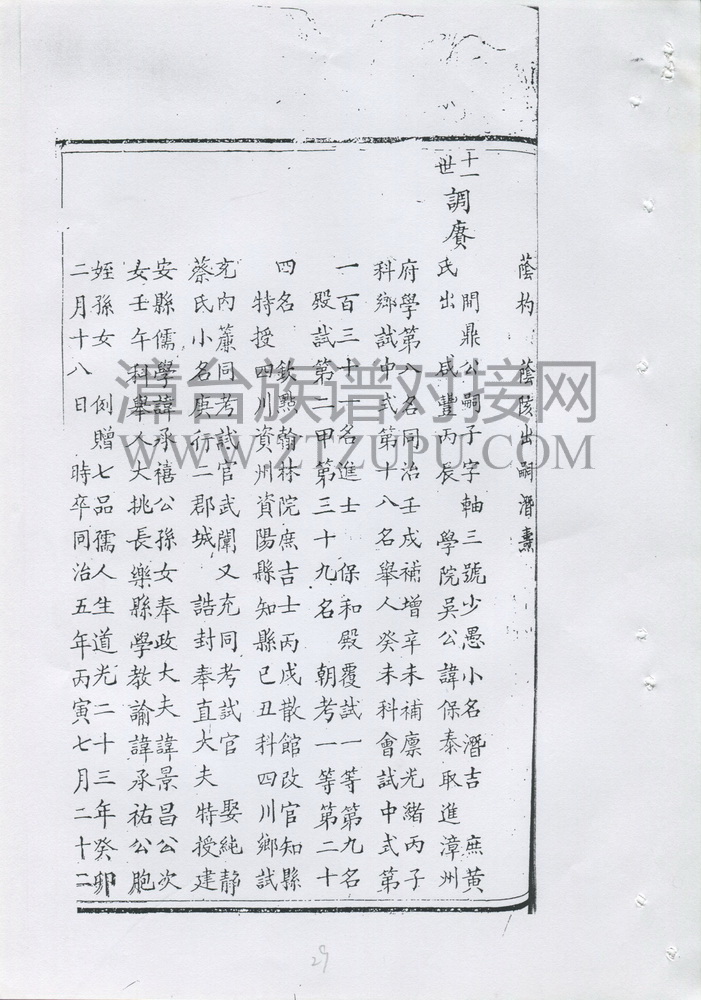 蔭杓　蔭陔出嗣潛熏
十一世
調賡
間鼎公嗣子字軸三號少愚小名潛吉　庶黃
氏出　咸豐丙辰　學院吳公諱保泰取進漳州
府學第八名同治壬戌補增辛未補廩光緒丙子
科鄉試中式第十八名舉人癸未科會試中式第
一百三十一名進士　保和殿覆試一等第九名
殿試第二甲第三十九名　朝考一等第二十
四名　欽點翰林院庶吉士丙戌散館改官知縣
特授四川資州資陽縣知縣己丑科四川鄉試
充內簾同考試官武闈又充同考試官　娶純靜
蔡氏小名庚行二郡城　誥封奉直大夫　特授建
安縣儒學諱承禧公孫女奉政大夫諱景昌公次
女壬午科舉人大挑長樂縣學教諭諱承祐公胞
姪孫女　例贈七品孺人生道光二十三年癸卯
二月十八日　時卒同治五年丙寅七月二十二
漳台族谱对接网
WWW.ZTZUPU.COM
29